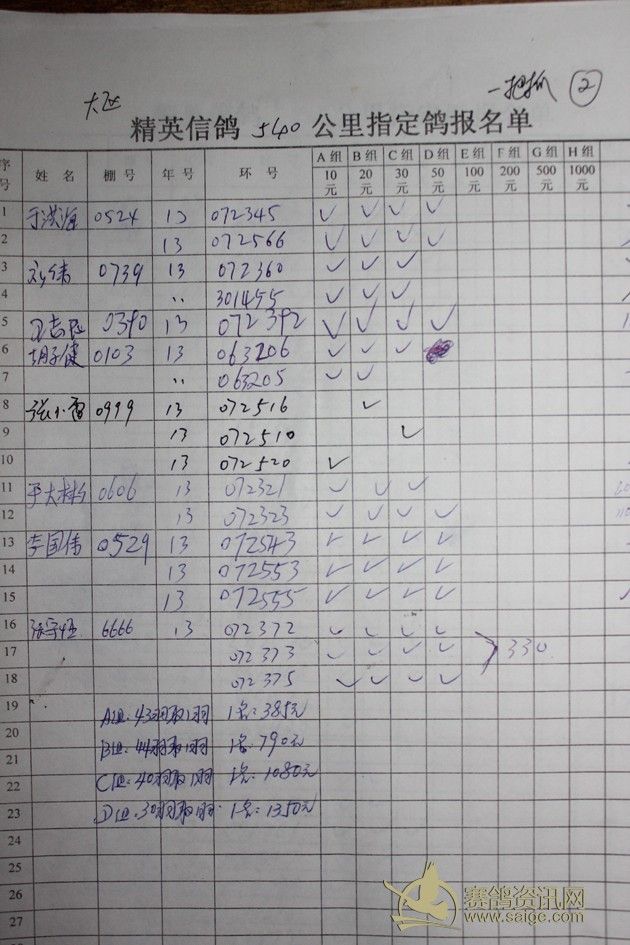 一把抓 ②
大连
精英信鸽 540 公里指定鸽报名单
序号 姓 名 棚 号 年 号 环 号 A组 10元 B组 20元 C组 30元 D组 50元 E组 100元 F组 200元 G组 500元 H组 1000元
1 于洪海 0524 13 072345 ✓ ✓ ✓ ✓
2 13 072566 ✓ ✓ ✓ ✓
3 刘伟 0739 13 072360 ✓ ✓ ✓
4 〃 301455 ✓ ✓ ✓
5 0390 13 072392 ✓ ✓ ✓ ✓
6 胡子健 0103 13 063206 ✓ ✓ ✓
7 〃 063205 ✓ ✓
8 张小雷 0999 13 072516 ✓
9 13 072510 ✓
10 13 072520 ✓
11 0606 13 072321 ✓ ✓ ✓
12 13 072323 ✓ ✓ ✓ ✓
13 李国伟 0529 13 072543 ✓ ✓ ✓ ✓
14 13 072553 ✓ ✓ ✓ ✓
15 13 072555 ✓ ✓ ✓ ✓
16 6666 13 072372 ✓ ✓ ✓ ✓
17 072373 ✓ ✓ ✓ ✓ 330
18 072375 ✓ ✓ ✓ ✓
19 A组:43羽取1羽 1名:385元
20 B组:44羽取1羽 1名:790元
21
22 C组:40羽取1羽 1名:1080元
23 D组:30羽取1羽 1名:1350元
24
25
26
27
赛鸽资讯网
www.saige.com